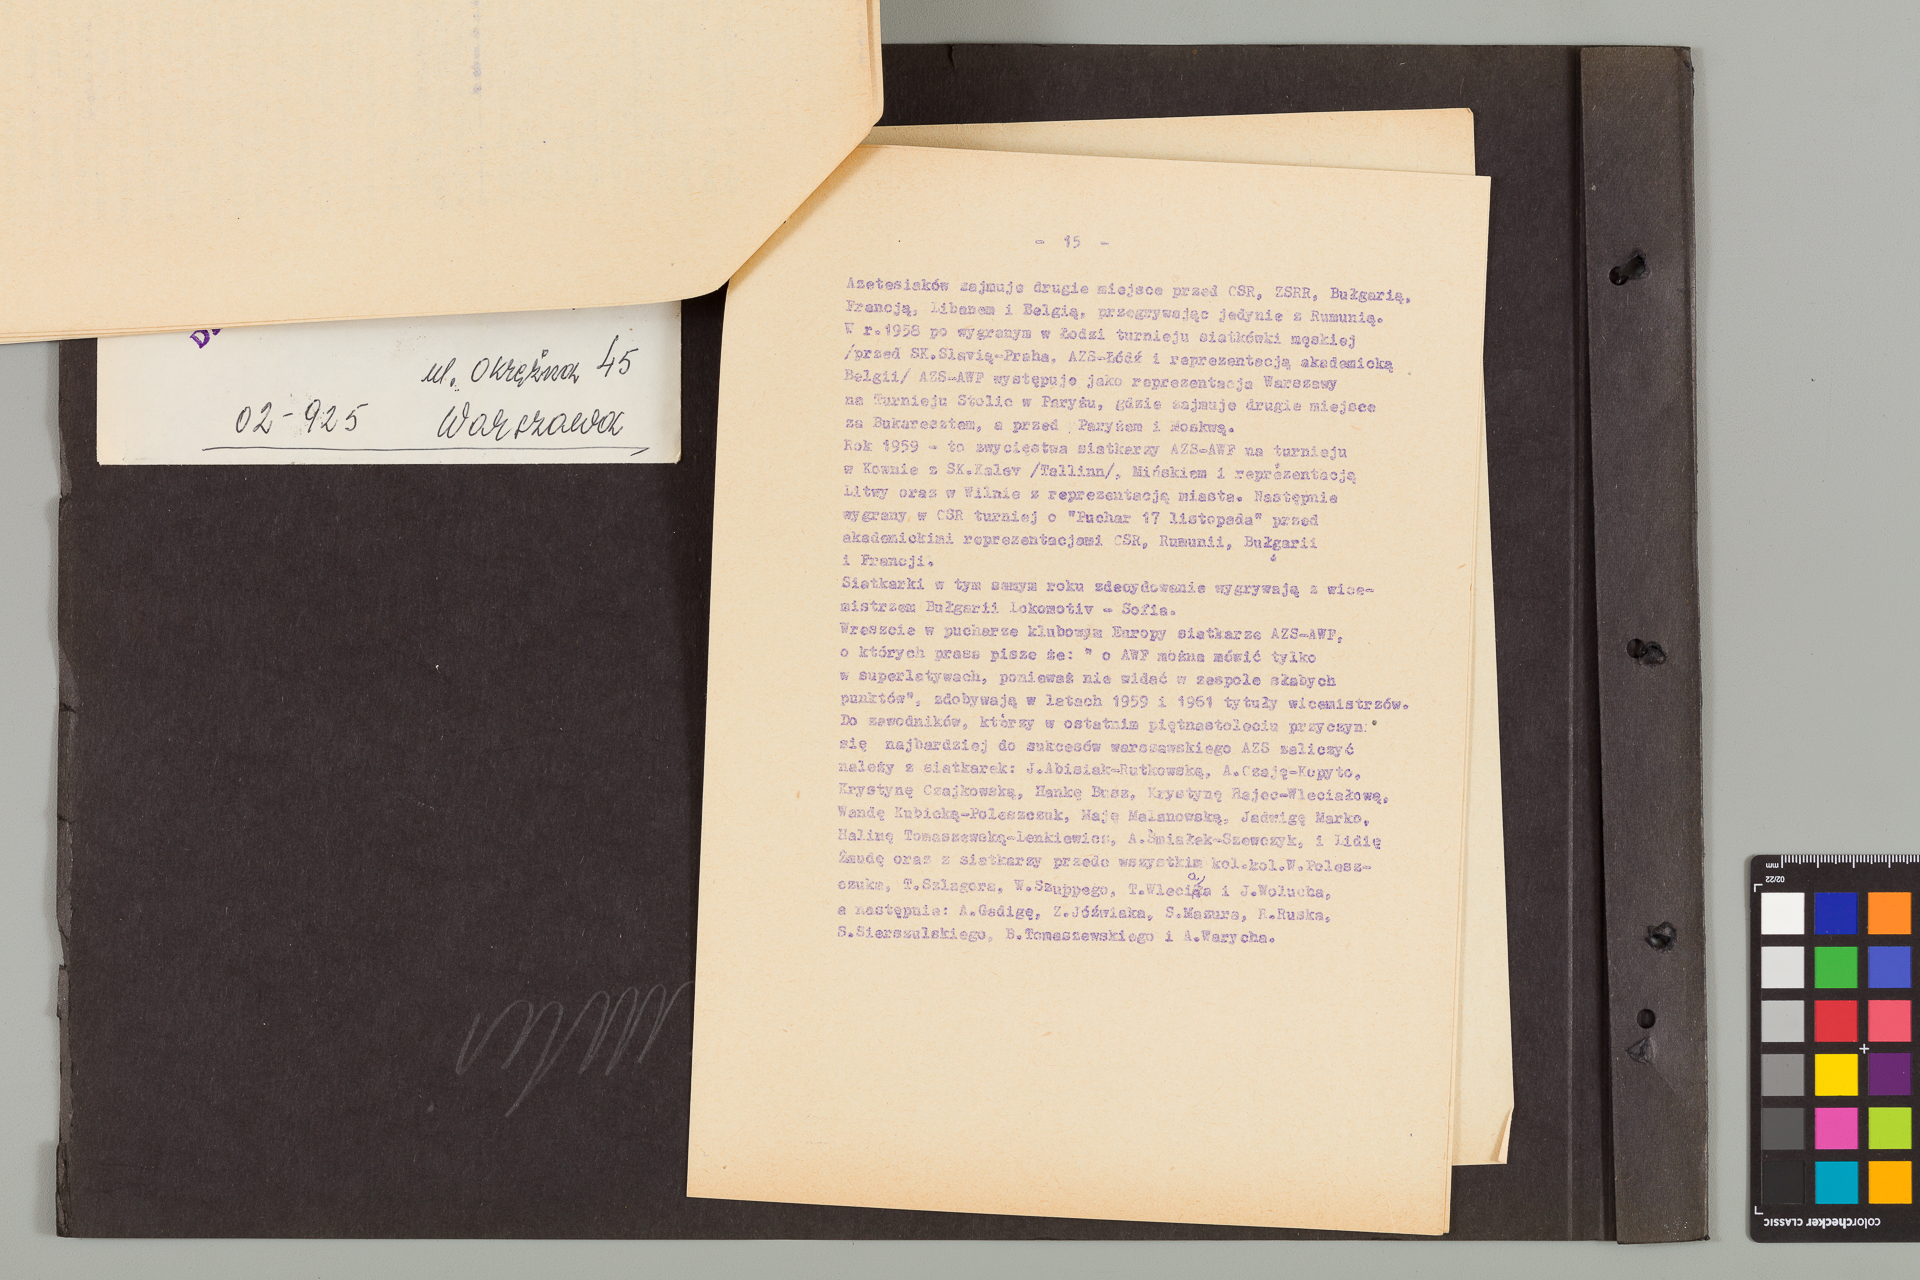 ul. Okrężna 45
02-925 Warszawa
- 15 -
Azetesiaków zajmuje drugie miejsce przed CSR, ZSRR, Bułgarią,
Francją, Libanem i Belgią, przegrywając jedynie z Rumunią.
W r.1958 po wygranym w Łodzi turnieju siatkówki męskiej
/przed SK.Slavią-Praha, AZS-Łódź i reprezentacją akademicką
Belgii/ AZS-AWF występuje jako reprezentacja Warszawy
na Turnieju Stolic w Paryżu, gdzie zajmuje drugie miejsce
za Bukaresztem, a przed Paryżem i Moskwą.
Rok 1959 - to zwycięstwa siatkarzy AZS-AWF na turnieju
w Kownie z SK.Kalev /Tallinn/, Mińskiem i reprezentacją
Litwy oraz w Wilnie z reprezentacją miasta. Następnie
wygrany w CSR turniej o "Puchar 17 listopada" przed
akademickimi reprezentacjami CSR, Rumunii, Bułgarii
i Francji.
Siatkarki w tym samym roku zdecydowanie wygrywają z wice-
mistrzem Bułgarii Lokomotiv - Sofia.
Wreszcie w pucharze klubowym Europy siatkarze AZS-AWF,
o których prasa pisze że: " o AWF można mówić tylko
w superlatywach, ponieważ nie widać w zespole słabych
punktów", zdobywają w latach 1959 i 1961 tytuły wicemistrzów.
Do zawodników, którzy w ostatnim piętnastoleciu
się najbardziej do sukcesów warszawskiego AZS zaliczyć
należy z siatkarek: J.Abisiak-Rutkowską, A.Czaję-Kopyto,
Krystynę Czajkowską, Hankę Busz, Krystynę Hajec-Wleciałową,
Wandę Kubicką-Poleszczuk, Maję Malanowską, Jadwigę Marko,
Halinę Tomaszewską-Lenkiewicz, A.Śmiałek-Szewczyk, i Lidię
Żmudę oraz z siatkarzy przede wszystkim kol.kol.W.Polesz-
czuka, T.Szlagora, W.Szuppego, T.Wleciała i J.Wołucha,
a następnie: A.Gadigę, Z.Jóźwiaka, S.Mazura, R.Ruska,
S.Sierszulskiego, B.Tomaszewskiego i A.Warycha.
mm
02/22
colorchecker CLASSIC